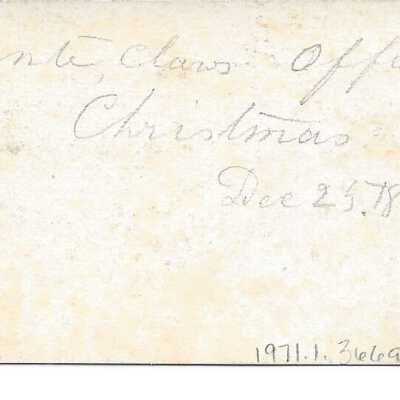 nte, Claws Off
Christmas
Dec 25, 78
1971.1.3669